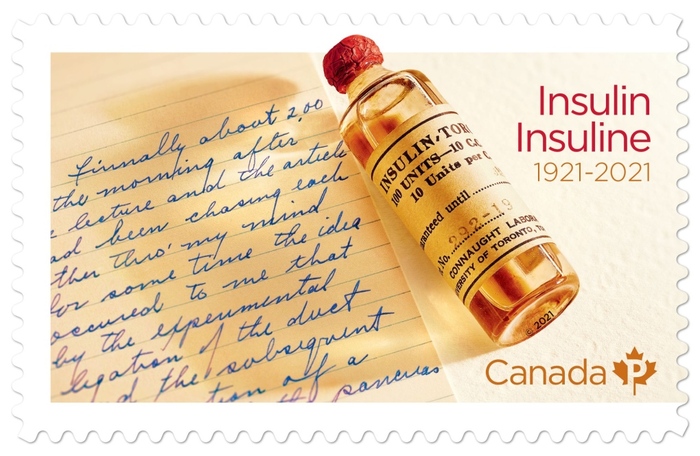 Finnally about 2.00
the morning after
e lecture and the article
ad been chasing each
ther thro' my mind
for some time the idea
occured to me that
by the experimental
ligation of the duct
d the subsequent
tion of a
the pancreas
INSULIN-TOR
100 UNITS—10 C.c
10 Units per C
aranteed until
No. 292-19
CONNAUGHT LABORA
VERSITY OF TORONTO, TO
© 2021
Insulin
Insuline
1921-2021
Canada P